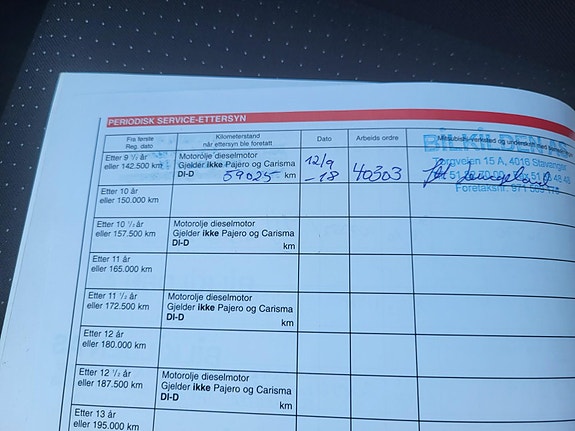 PERIODISK SERVICE-ETTERSYN
Fra første
Reg. dato
Kilometerstand
når ettersyn ble foretatt
Dato
Arbeids ordre
Mitsubishi
Etter 9 1/2 år
eller 142.500 km
Motorolje dieselmotor
Gjelder ikke Pajero og Carisma
DI-D 59025 km
12/9
-18
40303
BILKILDEN AS
Torgveien 15 A, 4016 Stavanger
Foretaksnr. 971
Etter 10 år
eller 150.000 km
Etter 10 1/2 år
eller 157.500 km
Motorolje dieselmotor
Gjelder ikke Pajero og Carisma
DI-D
km
Etter 11 år
eller 165.000 km
Etter 11 1/2 år
eller 172.500 km
Motorolje dieselmotor
Gjelder ikke Pajero og Carisma
DI-D
km
Etter 12 år
eller 180.000 km
Etter 12 1/2 år
eller 187.500 km
Motorolje dieselmotor
Gjelder ikke Pajero og Carisma
DI-D
km
Etter 13 år
eller 195.000 km